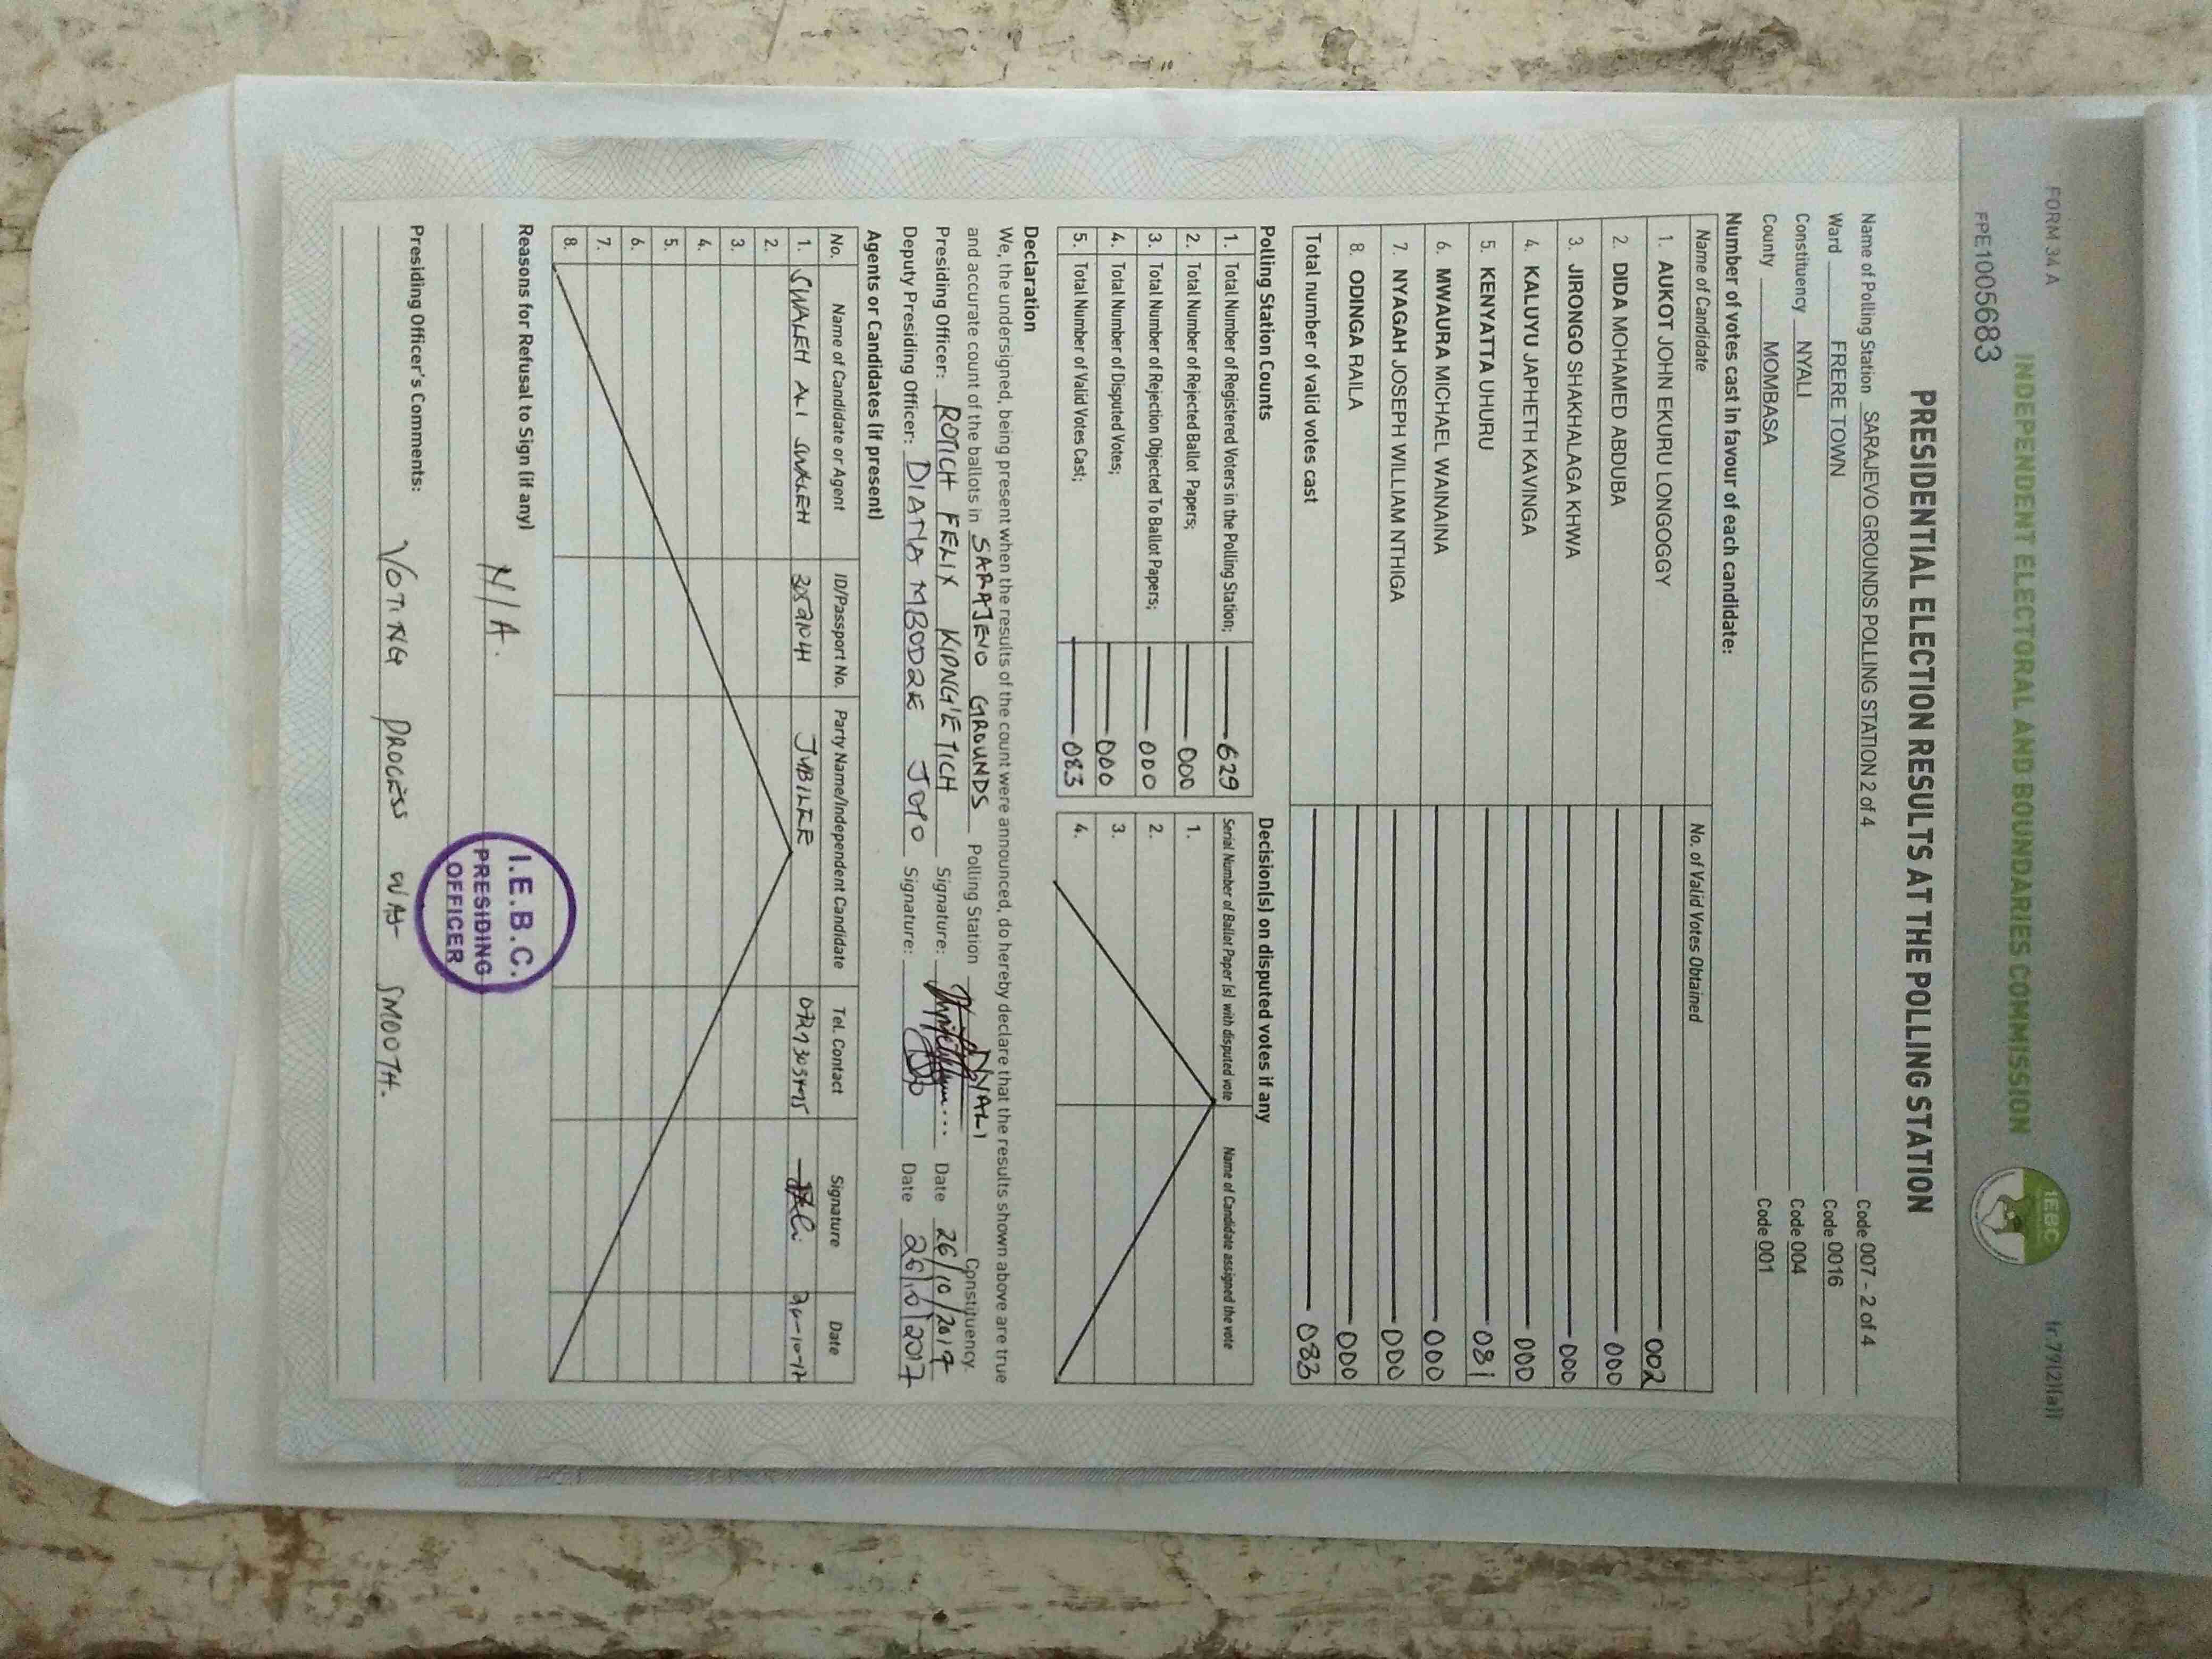 FORM 34 A
(r.79(2)(a))
INDEPENDENT ELECTORAL AND BOUNDARIES COMMISSION
IEBC
FPE1005683
PRESIDENTIAL ELECTION RESULTS AT THE POLLING STATION
Name of Polling Station SARAJEVO GROUNDS POLLING STATION 2 of 4 Code 007 - 2 of 4
Ward FRERE TOWN Code 0016
Constituency NYALI Code 004
County MOMBASA Code 001
Number of votes cast in favour of each candidate:
Name of Candidate No. of Valid Votes Obtained
1. AUKOT JOHN EKURU LONGOGGY 002
2. DIDA MOHAMED ABDUBA 000
3. JIRONGO SHAKHALAGA KHWA 000
4. KALUYU JAPHETH KAVINGA 000
5. KENYATTA UHURU 081
6. MWAURA MICHAEL WAINAINA 000
7. NYAGAH JOSEPH WILLIAM NTHIGA 000
8. ODINGA RAILA 000
Total number of valid votes cast 083
Polling Station Counts
1. Total Number of Registered Voters in the Polling Station; 629
2. Total Number of Rejected Ballot Papers; 000
3. Total Number of Rejection Objected To Ballot Papers; 000
4. Total Number of Disputed Votes; 000
5. Total Number of Valid Votes Cast; 083
Decision(s) on disputed votes if any
Serial Number of Ballot Paper (s) with disputed vote Name of Candidate assigned the vote
1.
2.
3.
4.
Declaration
We, the undersigned, being present when the results of the count were announced, do hereby declare that the results shown above are true
and accurate count of the ballots in SARAJEVO GROUNDS Polling Station NYALI Constituency.
Presiding Officer: ROTICH FELIX KIPNG'ETICH Signature: Date 26/10/2017
Deputy Presiding Officer: DIANA MBODZE JOYO Signature: Date 26/10/2017
Agents or Candidates (if present)
No. Name of Candidate or Agent ID/Passport No. Party Name/Independent Candidate Tel. Contact Signature Date
1. SWALEH ALI SWALEH JUBILEE
2.
3.
4.
5.
6.
7.
8.
Reasons for Refusal to Sign (if any)
N/A.
I.E.B.C.
PRESIDING
OFFICER
Presiding Officer's Comments: VOTING PROCESS WAS SMOOTH.